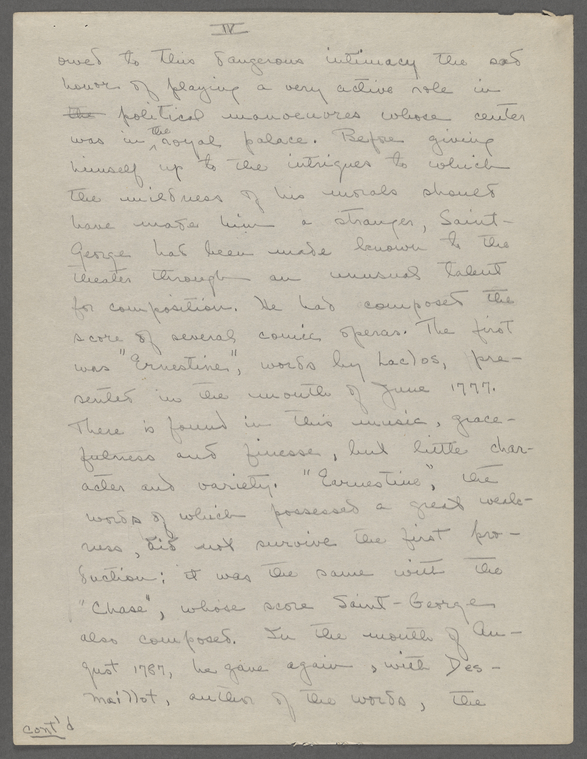 IV
owed to this dangerous intimacy the sad
honor of playing a very active role in
the political manoeuvres whose center
was in the royal palace. Before giving
himself up to the intrigues to which
the mildness of his morals should
have made him a stranger, Saint-
George had been made known to the
theater through an unusual talent
for composition. He had composed the
score of several comic operas. The first
was "Ernestine", words by Laclos, pre-
sented in the month of June 1777.
There is found in this music, grace-
fulness and finesse, but little char-
acter and variety. "Earnestine", the
words of which possessed a great weak-
ness, did not survive the first pro-
duction; it was the same with the
"Chase", whose score Saint-George
also composed. In the month of Au-
gust 1787, he gave again, with Des-
maillot, author of the words, the
cont'd